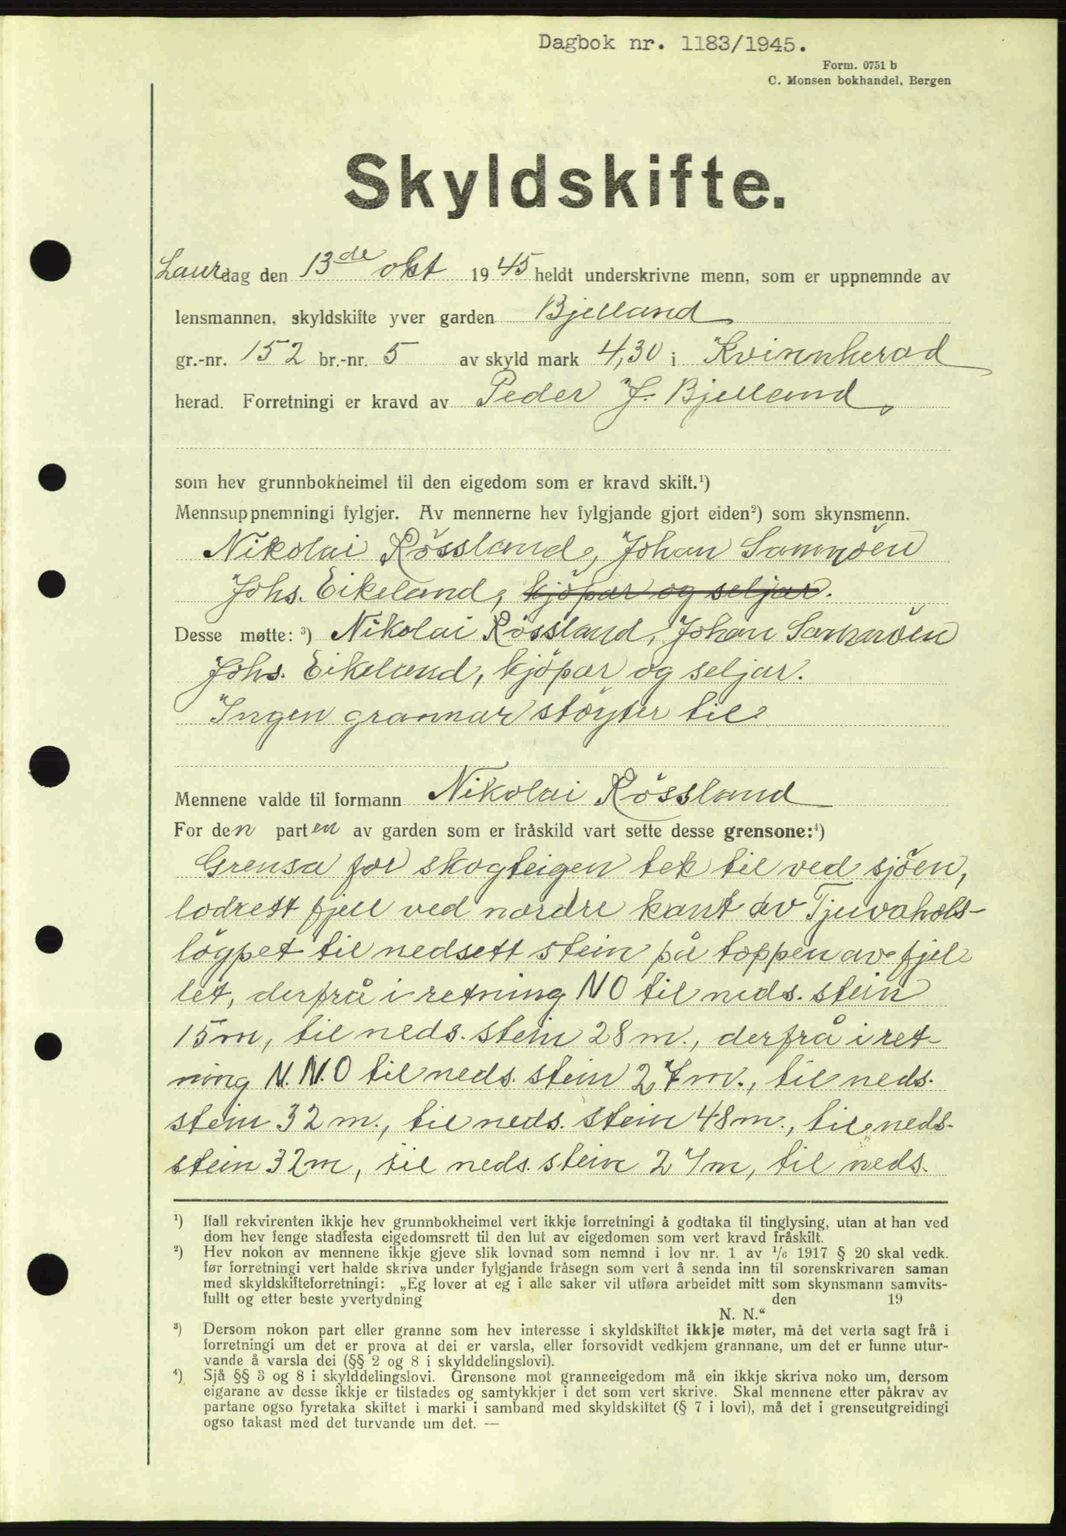 Dagbok nr. 1183/1945.
Form. 0751 b
C. Monsen bokhandel, Bergen
Skyldskifte.
Laurdag den 13de okt 1945 heldt underskrivne menn, som er uppnemnde av
lensmannen, skyldskifte yver garden Bjelland
gr.-nr. 152 br.-nr. 5 av skyld mark 4,30 i Kvinnherad
herad. Forretningi er kravd av Peder J. Bjelland,
som hev grunnbokheimel til den eigedom som er kravd skift.¹)
Mennsuppnemningi fylgjer. Av mennerne hev fylgjande gjort eiden²) som skynsmenn.
Nikolai Rössland, Johan Samnöen
Johs. Eikeland, kjöpar og seljar.
Desse møtte: ³) Nikolai Rössland, Johan Samnöen
Johs. Eikeland, kjöpar og seljar.
Ingen grannar støyter til
Mennene valde til formann Nikolai Rössland
For den parten av garden som er fråskild vart sette desse grensone:⁴)
Grensa for skogteigen tek til ved sjöen,
lodrett fjell ved nordre kant av Tjuvahols-
löypet til nedsett stein på toppen av fjel
let, derfrå i retning NO til neds. stein
15m, til neds. stein 28 m., derfrå i ret-
ning N.N.O til neds. stein 27m., til neds.
stein 32 m., til neds. stein 48 m., til neds-
stein 32m, til neds. stein 27m, til neds.
¹) Ifall rekvirenten ikkje hev grunnbokheimel vert ikkje forretningi å godtaka til tinglysing, utan at han ved
dom hev fenge stadfesta eigedomsrett til den lut av eigedomen som vert kravd fråskilt.
²) Hev nokon av mennene ikkje gjeve slik lovnad som nemnd i lov nr. 1 av ¹/₆ 1917 § 20 skal vedk.
før forretningi vert halde skriva under fylgjande fråsegn som vert å senda inn til sorenskrivaren saman
med skyldskifteforretningi: „Eg lover at eg i alle saker vil utføra arbeidet mitt som skynsmann samvits-
fullt og etter beste yvertydning den 19
N. N.“
³) Dersom nokon part eller granne som hev interesse i skyldskiftet ikkje møter, må det verta sagt frå i
forretningi um det er prova at dei er varsla, eller forsovidt vedkjem grannane, um det er funne utur-
vande å varsla dei (§§ 2 og 8 i skylddelingslovi).
⁴) Sjå §§ 3 og 8 i skylddelingslovi. Grensone mot granneeigedom må ein ikkje skriva noko um, dersom
eigarane av desse ikkje er tilstades og samtykkjer i det som vert skrive. Skal mennene etter påkrav av
partane ogso fyretaka skiftet i marki i samband med skyldskiftet (§ 7 i lovi), må det i grenseutgreidingi
ogso takast med det turvande um det. —